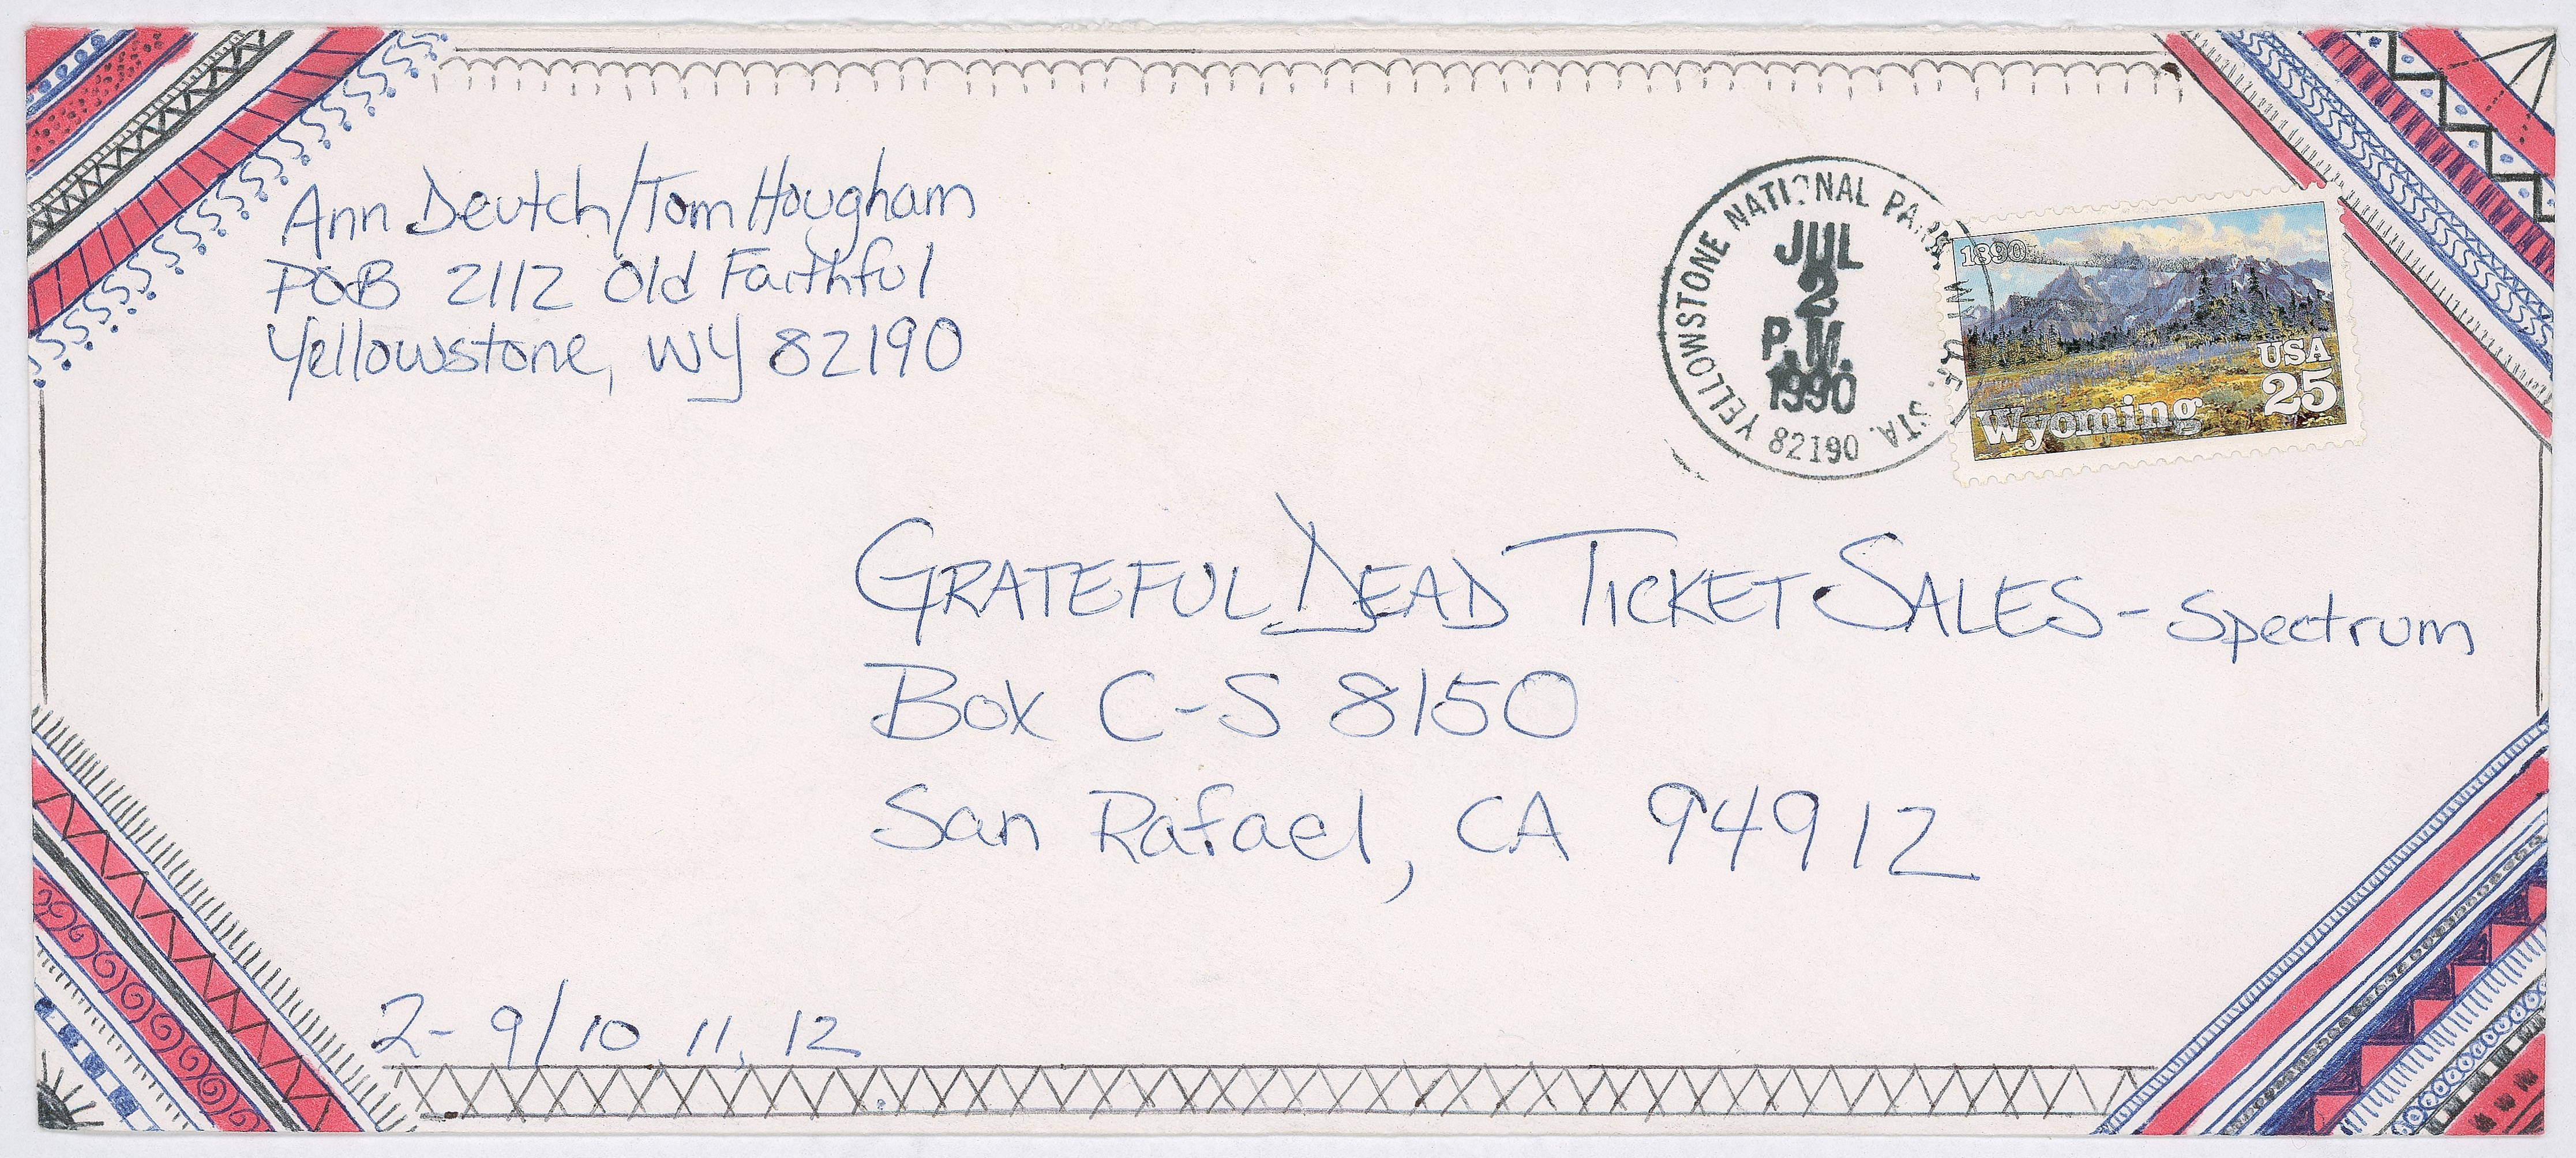 Ann Deutch/Tom Hougham
POB 2112 Old Faithful
Yellowstone, WY 82190
YELLOWSTONE NATIONAL PARK, WY O.F. STA. 82190
JUL
2
P.M.
1990
1890
USA
25
Wyoming
GRATEFUL DEAD TICKET SALES - Spectrum
Box C-S 8150
San Rafael, CA 94912
2- 9/10, 11, 12